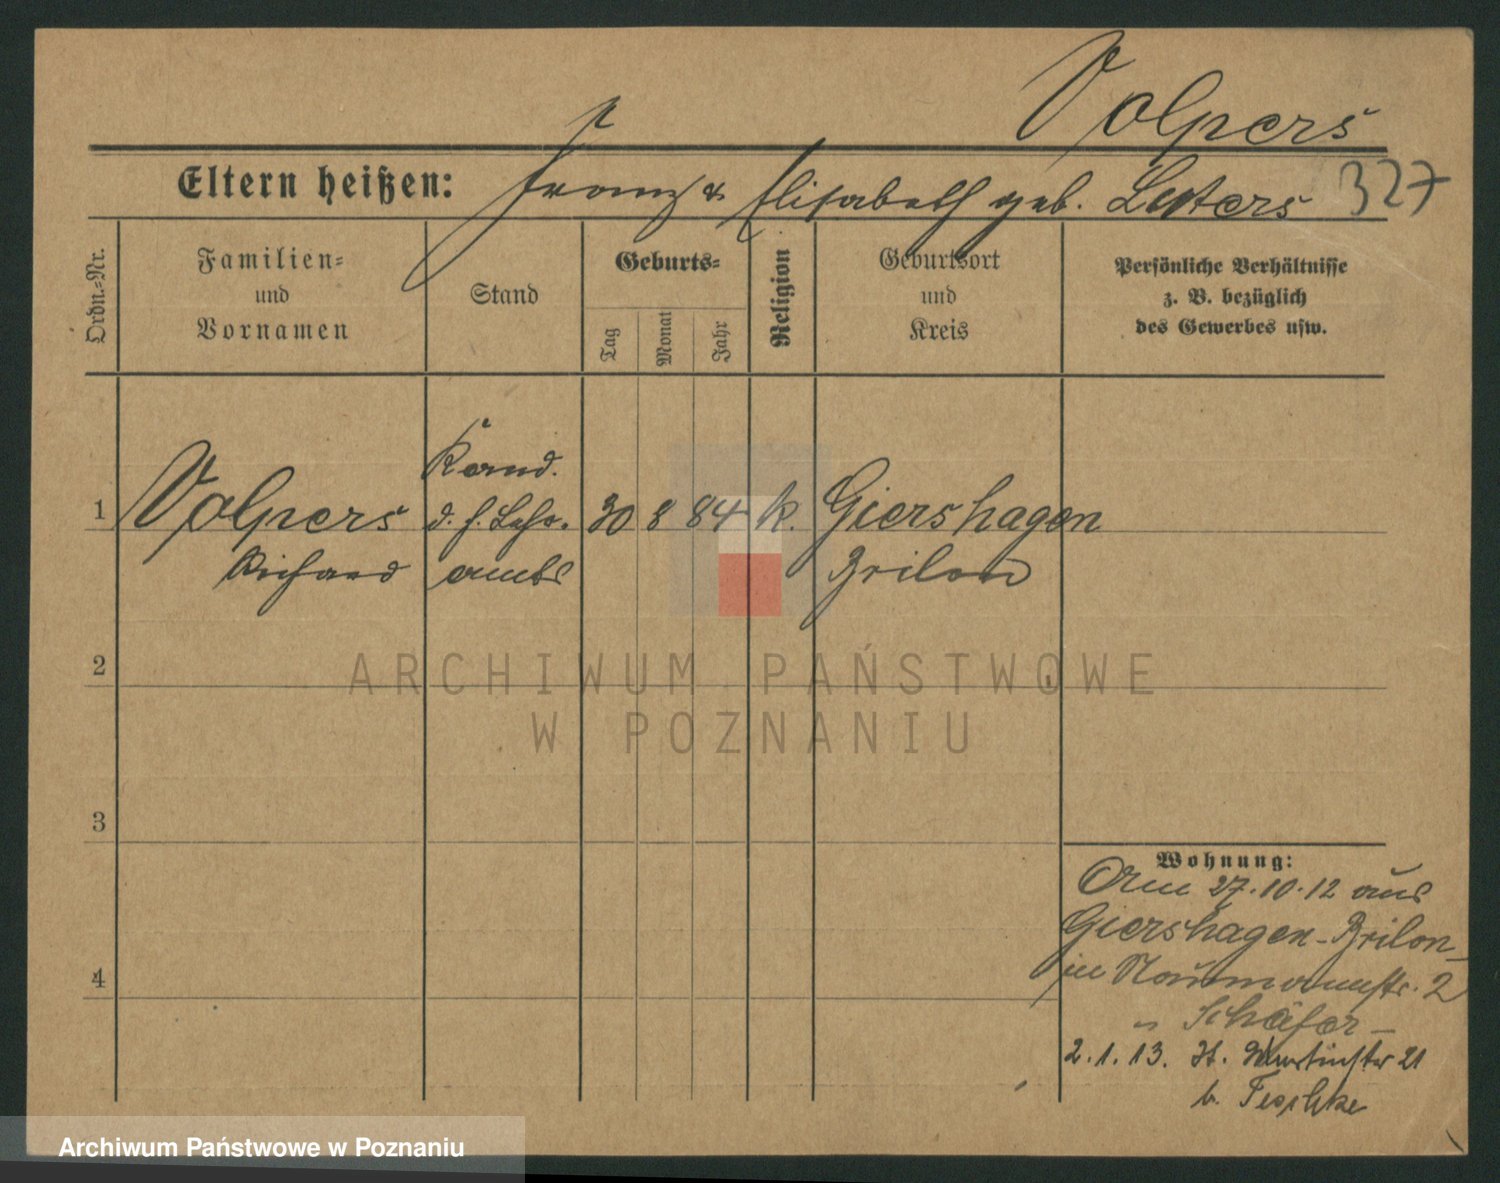 Volpers
Eltern heißen: Franz & Elisabeth geb. 327
Ordn.-Nr.
Familien-
und
Vornamen
Stand
Geburts-
Tag
Monat
Jahr
Religion
Geburtsort
und
Kreis
Persönliche Verhältnisse
z. B. bezüglich
des Gewerbes usw.
Kand.
1 Volpers d. h. Lehr- 30 8 84 k. Giershagen
Richard amts Brilon
2
ARCHIWUM PAŃSTWOWE
W POZNANIU
3
4
Wohnung:
Am 27.10.12 aus
Giershagen-Brilon
in Naumannstr. 2
" Schäfer -
2.1.13. St. Martinstr 21
b. Teschke
Archiwum Państwowe w Poznaniu